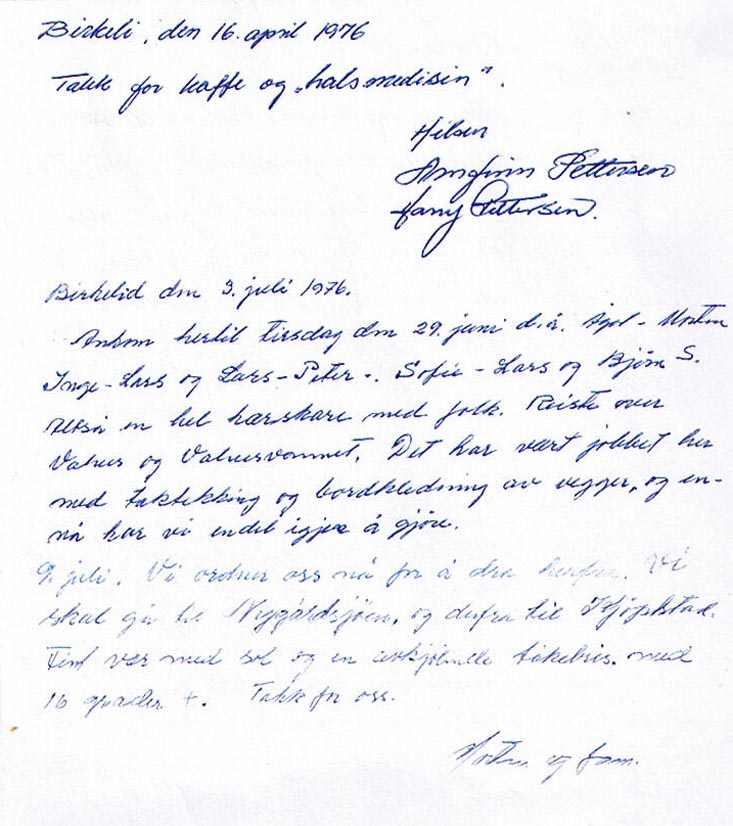 Birkeli, den 16. april 1976
Takk for kaffe og „halsmedisin".
Hilsen
Arnfinn Pettersen
Pettersen.
Birkelid den 3. juli 1976.
Ankom hertil tirsdag den 29. juni d.å. - Morten
Inge-Lars og Lars-Peter -. Sofie - Lars og Bjørn S.
Altså en hel hærskare med folk. Reiste over
Valnes og Valnesvannet. Det har vært jobbet her
med taktekking og bordkledning av vegger, og en-
nå har vi endel igjen å gjøre.
9. juli. Vi ordner oss nå for å dra herfra. Vi
skal gå til Nygårdsjøen, og derfra til Kjøpstad.
Fint vær med sol og en avkjølende tåkebris. med
16 grader +. Takk for oss.
og fam.